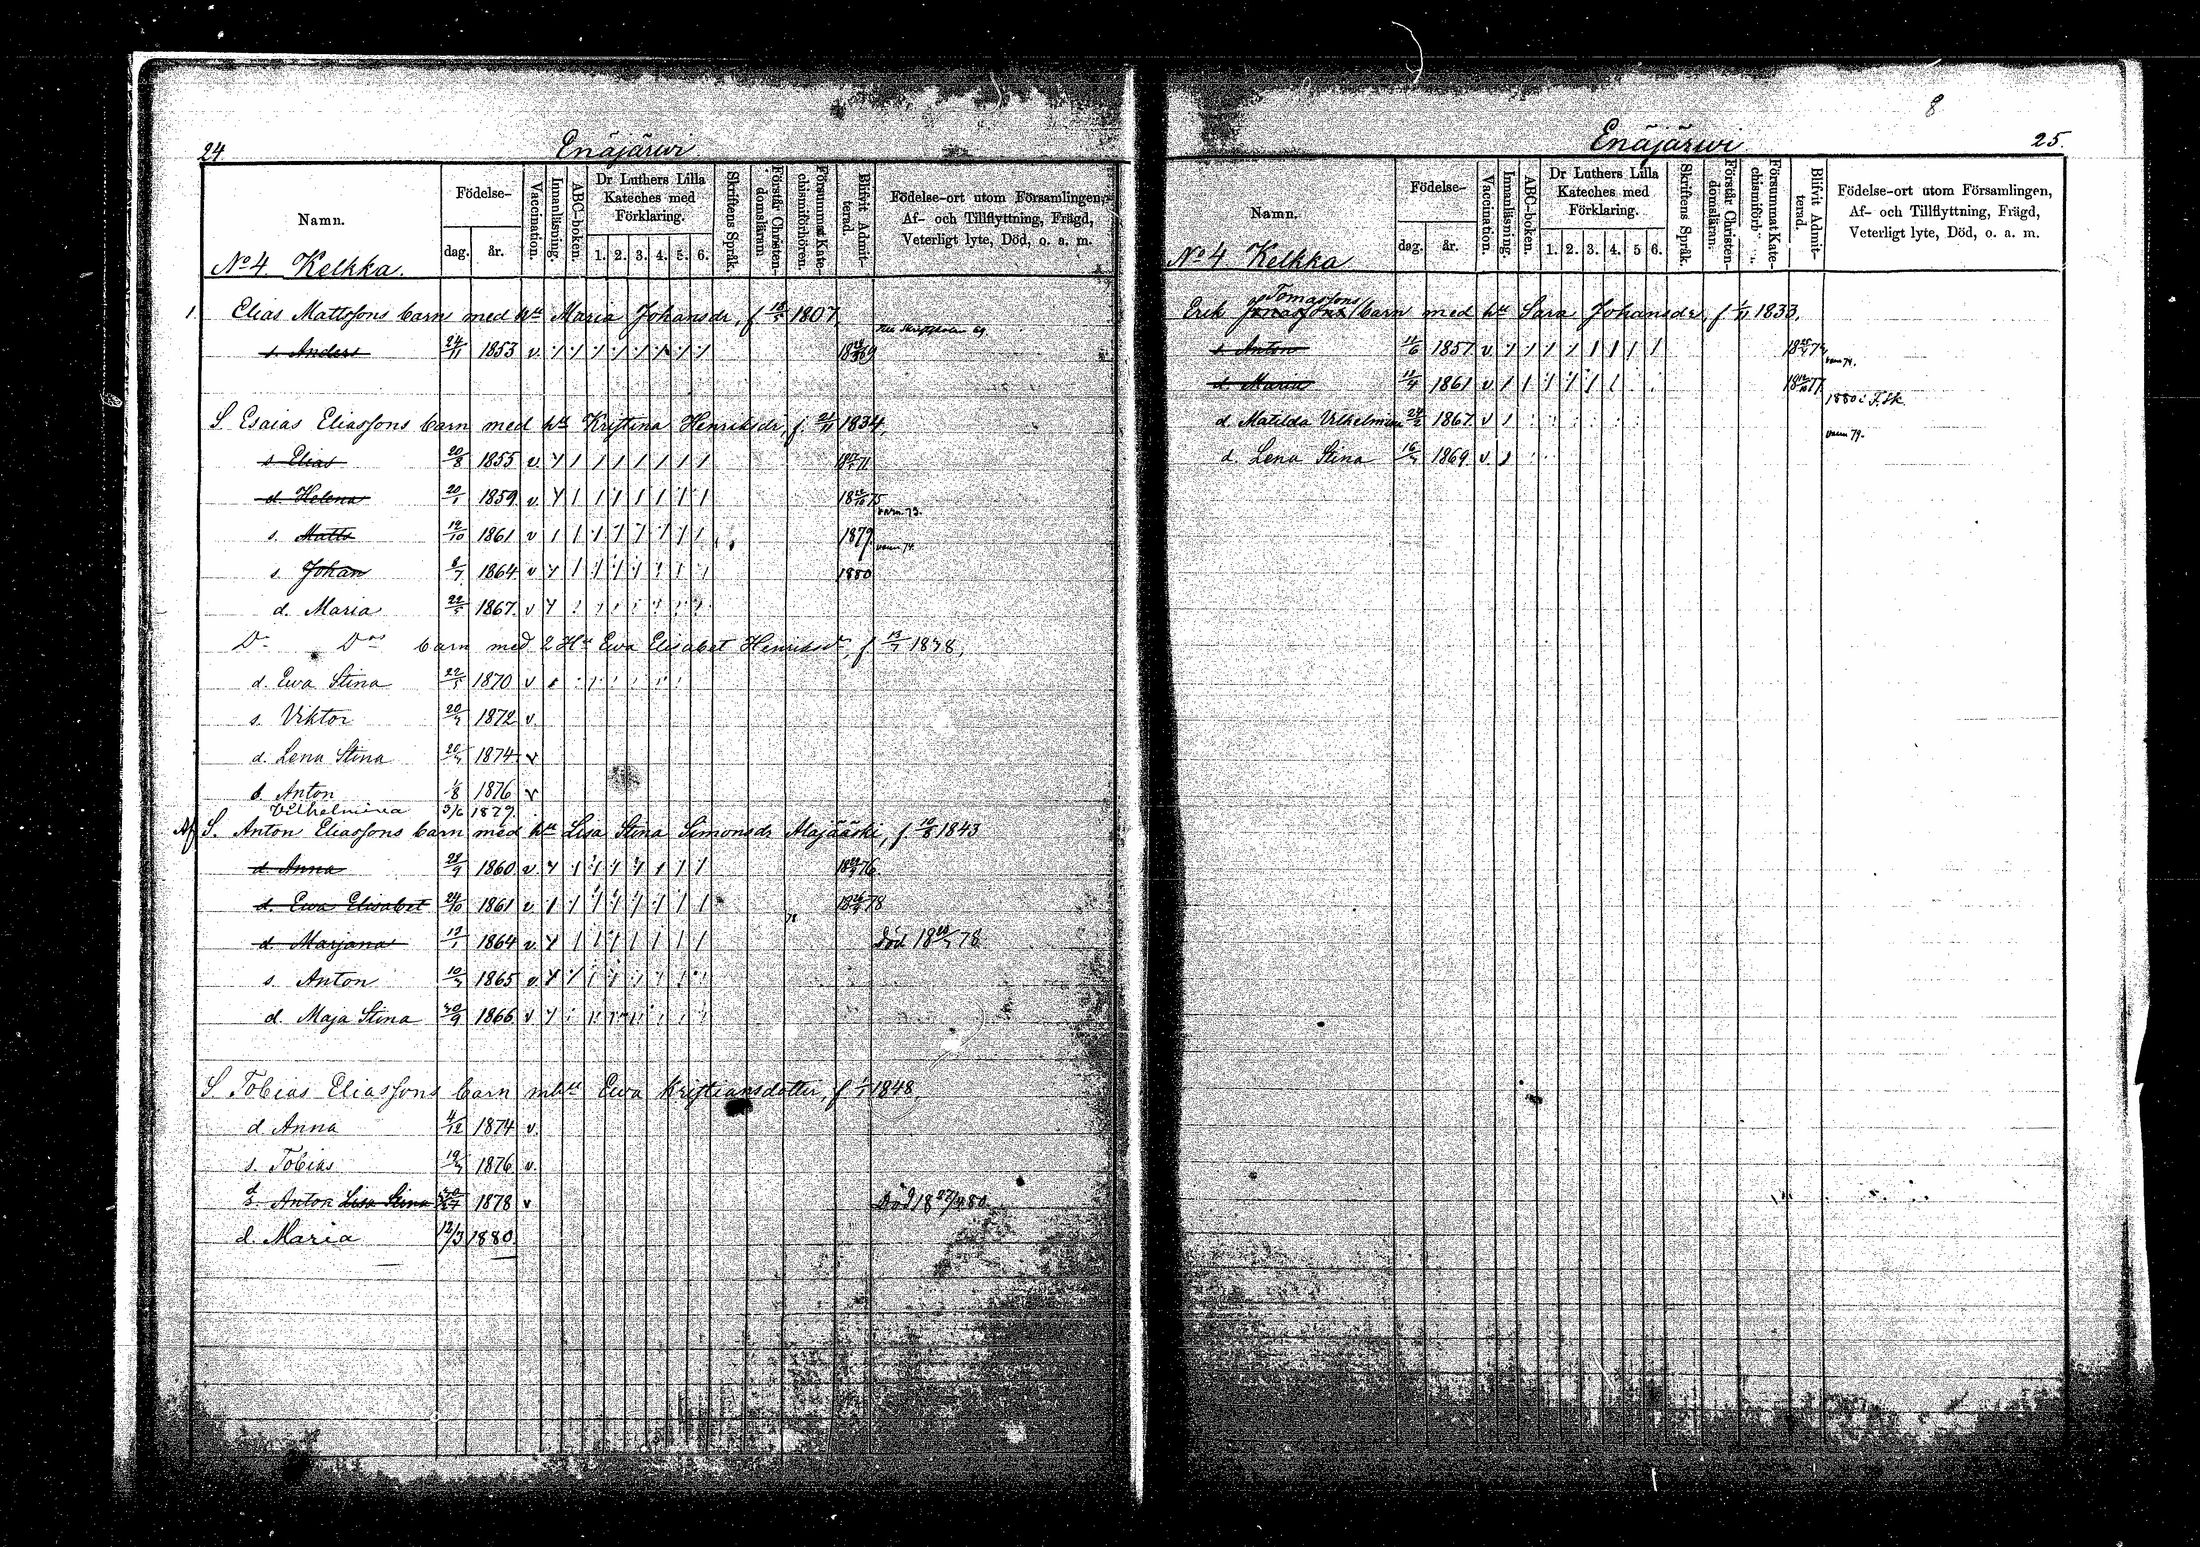 24
Enäjärwi
Namn.
Födelse-
dag.
år.
Vaccination.
Innanläsning.
ABC-boken.
Dr Luthers Lilla
Kateches med
Förklaring.
1. 2. 3. 4. 5. 6.
Skriftens Språk.
Förstår Christen-
domsläran.
Försummat Kate-
chismiförhören.
Blifvit Admit-
terad.
Födelse-ort utom Församlingen,
Af- och Tillflyttning, Frägd,
Veterligt lyte, Död, o. a. m.
No 4 Kelkka.
1. Elias Mattssons barn med hu Maria Johansdr, f. 1807,
s. Anders 24/11 1853 v.
S. Esaias Eliassons barn med hu Kristina Henriksdr, f. 21/11 1834,
s. Elias 20/8 1855 v.
d. Helena 20/1 1859 v.
vam. 73.
s. Matts 19/10 1861 v 1879.
vam. 74.
s. Johan 8/7 1864 v 1880
d. Maria 22/5 1867. v
Do Dos barn med 2 Hu Ewa Elisabet Henriksdr, f 13/7 1838,
d. Ewa Stina 22/5 1870 v
s. Viktor 1872 v
d. Lena Stina 1874 v
s. Anton 1/8 1876 v
Vilhelmina 3/6 1879.
S. Anton Eliassons barn med hu Lisa Stina Simonsdr Alajääski, f. 10/8 1843
d. Anna 28/9 1860 v
Ewa Elisabet 24/10 1861 v
d. Marjana 13/1 1864 v. Död 78
s. Anton 1865 v
d. Maja Stina 30/9 1866 v
S. Tobias Eliassons barn m hu Ewa Kristiansdotter, f 1848,
d. Anna 4/12 1874 v.
s. Tobias 1876 v.
Anton Lisa Stina 1878 v Död 18 27/4 80.
d. Maria 12/3 1880
8
Enäjärwi
25.
Namn.
Födelse-
dag.
år.
Vaccination.
Innanläsning.
ABC-boken.
Dr Luthers Lilla
Kateches med
Förklaring.
1. 2. 3. 4. 5 6.
Skriftens Språk.
Förstår Christen-
domsläran.
Försummat Kate-
chismiförh
Blifvit Admit-
terad.
Födelse-ort utom Församlingen,
Af- och Tillflyttning, Frägd,
Veterligt lyte, Död, o. a. m.
No 4 Kelkka
Tomassons
Erik Jonassons barn med hu Sara Johansdr, f 1/11 1833,
s. Anton 1857 v
vam 74.
d. Maria 1861 v
1880 i F.sk.
d. Matilda Vilhelmina 24/2 1867. v
vam 79.
d. Lena Stina 1869 v.